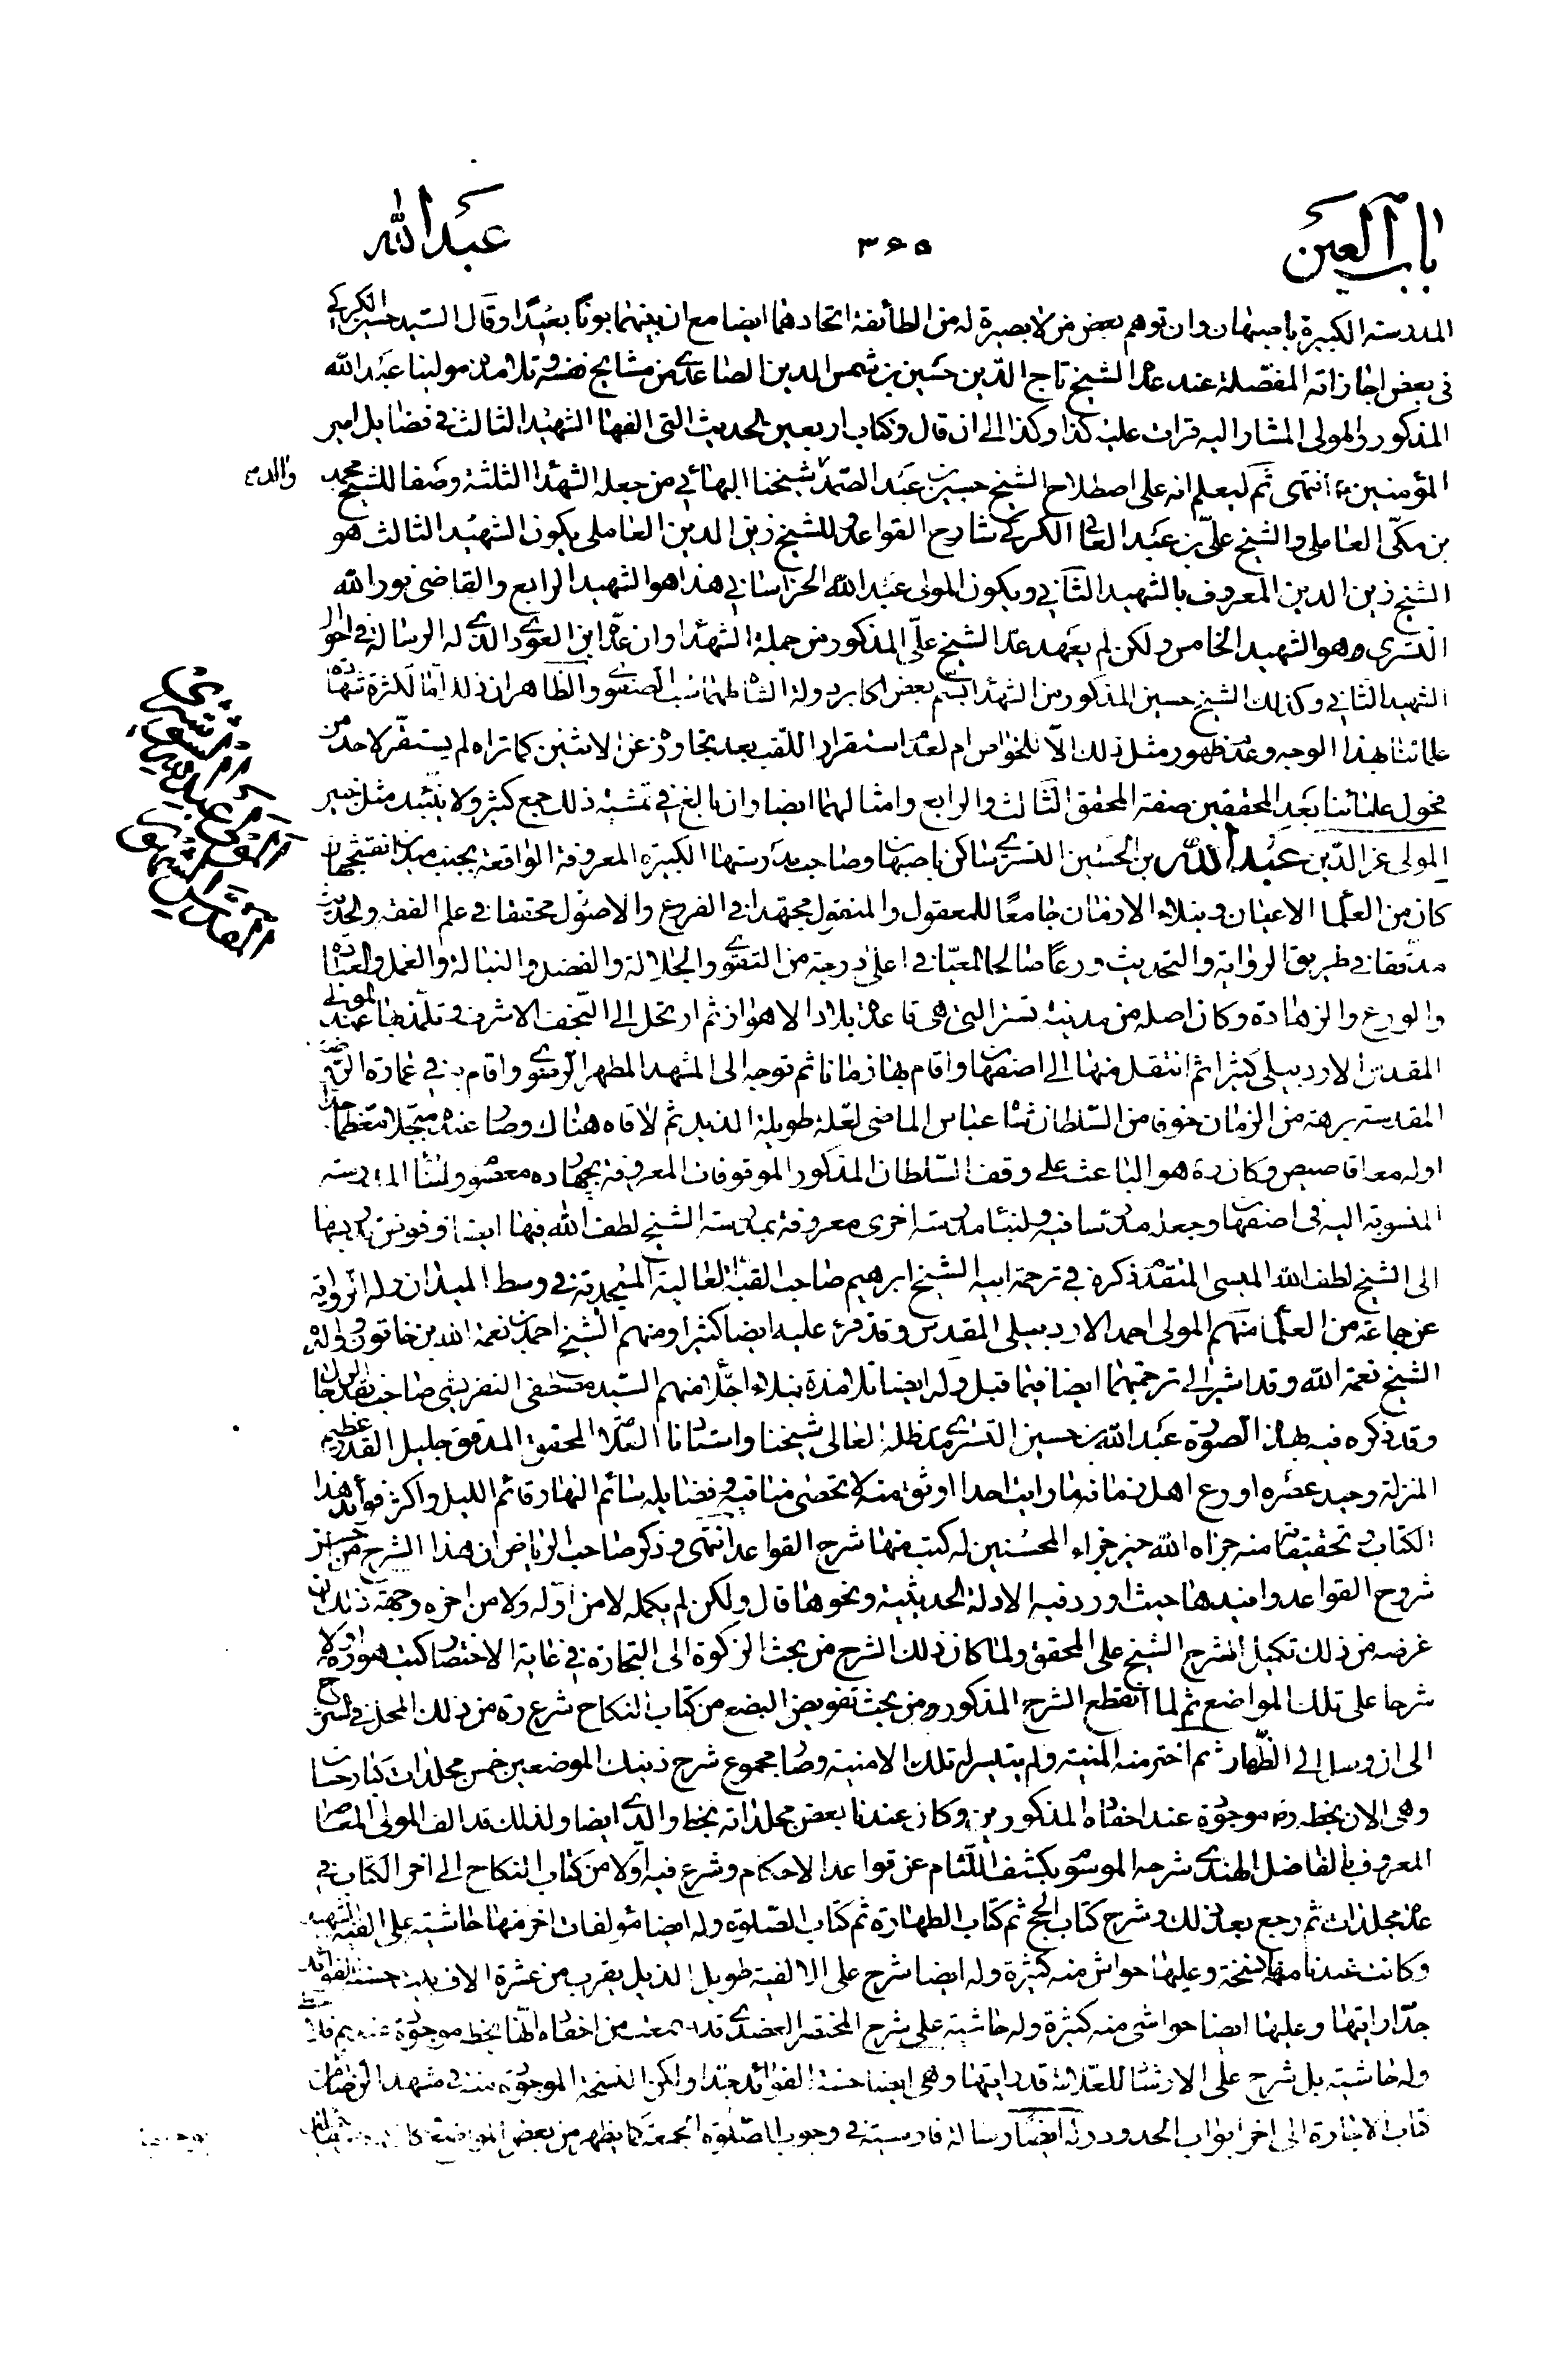 باب العين
٣٦٥
عبد الله
المدرسة الكبيرة باصبهان وان توهم بعض من لا بصيرة له من الطائفة اتحادهما ايضا مع ان بينهما بونا بعيدا وقال السيد حسين الكركي
في بعض اجازاته المفصلة عند عد الشيخ تاج الدين حسين بن شمس الدين الصاعدي من مشايخ نفسه وتلامذ مولينا عبد الله
المذكور والمولى المشار اليه قرات عليه كذا وكذا الى ان قال وكتاب اربعين الحديث التي الفها الشهيد الثالث في فضايل امير
المؤمنين ع انتهى ثم ليعلم انه على اصطلاح الشيخ حسين بن عبد الصمد شيخنا البهائي من جعله الشهدا الثلثة وصفا للشيخ محمد
والد
بن مكي العاملي والشيخ علي بن عبد العالي الكركي شارح القواعد وللشيخ زين الدين العاملي يكون الشهيد الثالث هو
الشيخ زين الدين المعروف بالشهيد الثاني ويكون المولى عبد الله الخراساني هذا هو الشهيد الرابع والقاضي نور الله
التستري هو الشهيد الخامس ولكن لم يعهد عد الشيخ علي المذكور من جملة الشهدا وان عده ابن العودي الذي له الرسالة في احوال
الشهيد الثاني وكذلك الشيخ حسين المذكور من الشهدا بسم بعض اكابر دولة الشاه طهماسب الصفوي والظاهر ان ذلك اما لكثرة شهداء
علمائنا بهذا الوجه وعدم ظهور مثل ذلك الا للخواص ام لعدم استقرار اللقب بعد تجاوزه عن الاثنين كما تراه لم يستقر لاحد من
فحول علمائنا بعد المحققين صفة المحقق الثالث والرابع وامثالهما ايضا وان بالغ في تمشية ذلك جمع كثير ولا ينبئك مثل خبير
المولى عز الدين عبد الله بن الحسين التستري ساكن باصبهان وصاحب مدرستها الكبيرة المعروفة الواقعة بجنب ميدان نقش جهان
كان من العلما الاعيان ونبلاء الازمان جامعا للمعقول والمنقول مجتهدا في الفروع والاصول محققا في علم الفقه والحديث
مدققا في طريق الرواية والتحديث ورعا صالحا لمعيا في اعلى درجة من التقوى والجلالة والفضل والنبالة والعمل والعبادة
والورع والزهادة وكان اصله من مدينة تستر التي هي قاعدة بلاد الاهواز ثم ارتحل الى النجف الاشرف وتلمذ بها عند المولى
المقدس الاردبيلي كثيرا ثم انتقل منها الى اصفهان واقام بها زمانا ثم توجه الى المشهد المطهر الرضوي واقام به في عمارة الروضة
المقدسة برهة من الزمان خوفا من السلطان شاه عباس الماضي لعلة طويلة الذيل ثم لاقاه هناك وصار عنده مبجلا معظما جدا
وله معه اقاصيص وكان ره هو الباعث على وقف السلطان المذكور الموقوفات المعروفة بچهارده معصوم ولنشا المدرسة
المنسوبة اليه في اصفهان وجعله مدرسا فيه ولبناء مدرسة اخرى معروفة بمدرسة الشيخ لطف الله فيها ايضا وفوض تدريسها
الى الشيخ لطف الله الميسي المتقدم ذكره في ترجمة ابيه الشيخ ابرهيم صاحب القبة العالية المسجدية في وسط الميدان وله الرواية
عن جماعة من العلما منهم المولى احمد الاردبيلي المقدس وقد قرء عليه ايضا كثيرا ومنهم الشيخ احمد بن نعمة الله بن خاتون ووالده
الشيخ نعمة الله وقد اشير الى ترجمتهما ايضا فيما قبل وله ايضا تلامذة نبلاء اجلاء منهم السيد مصطفى التفريشي صاحب نقد الرجال
وقد ذكره فيه بهذه الصورة عبد الله بن حسين التستري مد ظله العالى شيخنا واستادنا العلامة المحقق المدقق جليل القدر عظيم
المنزلة وحيد عصره اورع اهل زمانه ما رايت احدا اوثق منه لا تحصى مناقبه وفضايله صائم النهار قائم الليل واكثر فوائد هذا
الكتاب وتحقيقاته منه جزاه الله خير جزاء المحسنين له كتب منها شرح القواعد انتهى وذكر صاحب الرياض ان هذا الشرح من احسن
شروح القواعد وافيدها حيث اورد فيه الادلة الحديثية ونحوها قال ولكن لم يكمله لا من اوله ولا من اخره وجهة ذلك ان
غرضه من ذلك تكميل شرح الشيخ علي المحقق ولما كان ذلك الشرح من بحث الزكوة الى التجارة في غاية الاختصار كتب هو ره اولا
شرحا على تلك المواضع ثم لما انقطع الشرح المذكور من بحث تفويض البضع من كتاب النكاح شرع ره من ذلك المحل في الشرح
الى ان وصل الى الظهار ثم اخترمته المنية ولم يتيسر له تلك الامنية وصار مجموع شرح ذينك الموضعين خمس مجلدات كبار حسان
وهى الان بخطه ره موجودة عند احفاده المذكورين وكان عندنا بعض مجلداته بخط والدي ايضا ولذلك قد الف المولى المعاصر
المعروف بالفاضل الهندي شرحه الموسوم بكشف اللثام عن قواعد الاحكام وشرع فيه اولا من كتاب النكاح الى اخر الكتاب في
عدة مجلدات ثم رجع بعد ذلك وشرح كتاب الحج ثم كتاب الطهارة ثم كتاب الصلوة وله ايضا مؤلفات اخر منها حاشية على الفية الشهيد
وكانت عندنا منها نسخة وعليها حواش منه كثيرة وله ايضا شرح على الالفية طويل الذيل يقرب من عشرة الاف بيت حسنة الفوائد
جدا رايتها وعليها ايضا حواشي منه كثيرة وله حاشية على شرح المختصر العضدي قد سمعت من احفاده انها بخطه موجودة عندهم
وله حاشية بل شرح على الارشاد للعلامة قد رايتها وهي ايضا حسنة الفوائد جدا ولكن النسخة الموجودة منه في مشهد الرضا من
كتاب الاجارة الى اخر ابواب الحدود وله ايضا رسالة فارسية في وجوب الصلوة الجمعة كما يظهر من بعض المواضع